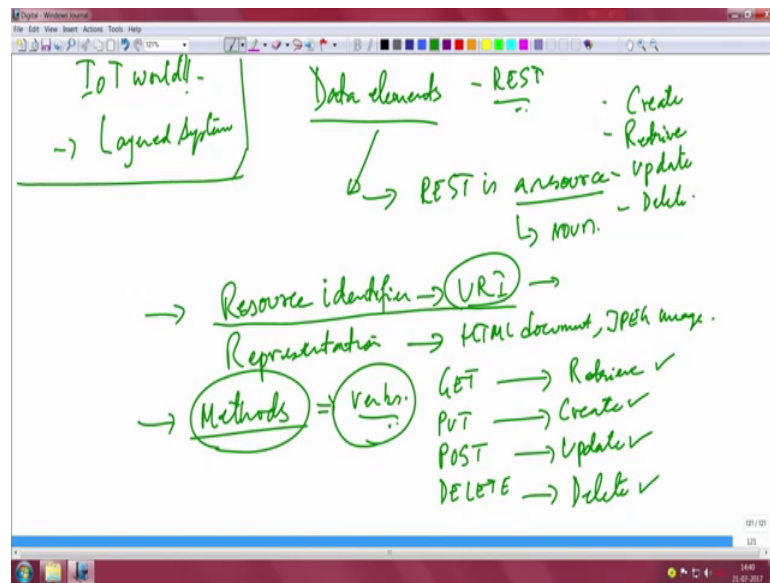 Digital - Windows Journal
File Edit View Insert Actions Tools Help
121%
IoT world!! -
-> Layered System
Data elements - REST
- Create
- Retrive
- Update
- Delete.
-> REST is a resource
↳ noun.
-> Resource identifier -> URI ->
Representation -> HTML document, JPEG image.
-> Methods = Verbs.
GET -> Retrieve ✓
PUT -> Create ✓
POST -> Update ✓
DELETE -> Delete ✓
121 / 121
121
14:40
21-07-2017